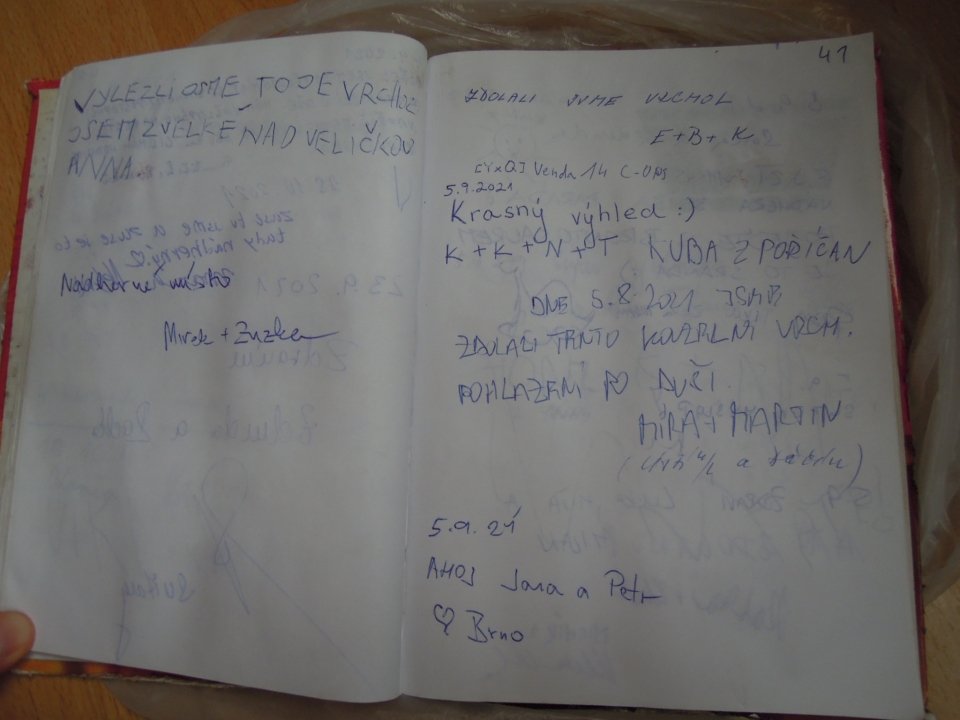 VYLEZLI JSME TO JE VRCHOL
JSEM Z VELKÉ NAD VELIČKOU
ANNA.
zase tu jsme a zase je to
tady nádherný! ♡
Nádherné místo
Mirek + Zuzka
41
ZDOLALI JSME VRCHOL
E+B+K
Venda 14
5.9.2021
Krasný výhled :)
K + K + N + T KUBA Z POŘÍČAN
DNE 5.8.2021 JSME
ZDOLALI TENTO VRCH.
POHLAZENÍ PO DUŠI.
MÍRA + MARTIN
5.9.21
AHOJ Jana a Petr
♡ Brno